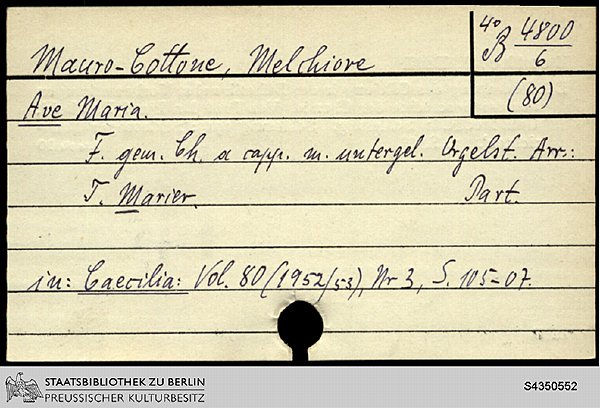 Mauro-Cottone, Melchiore
4° B 4800/6
(80)
Ave Maria.
F. gem. Ch. a capp. m. untergel. Orgelst. Arr.:
T. Marier. Part.
in: Caecilia: Vol. 80 (1952/53), Nr 3, S. 105-07.
STAATSBIBLIOTHEK ZU BERLIN
PREUSSISCHER KULTURBESITZ
S4350552